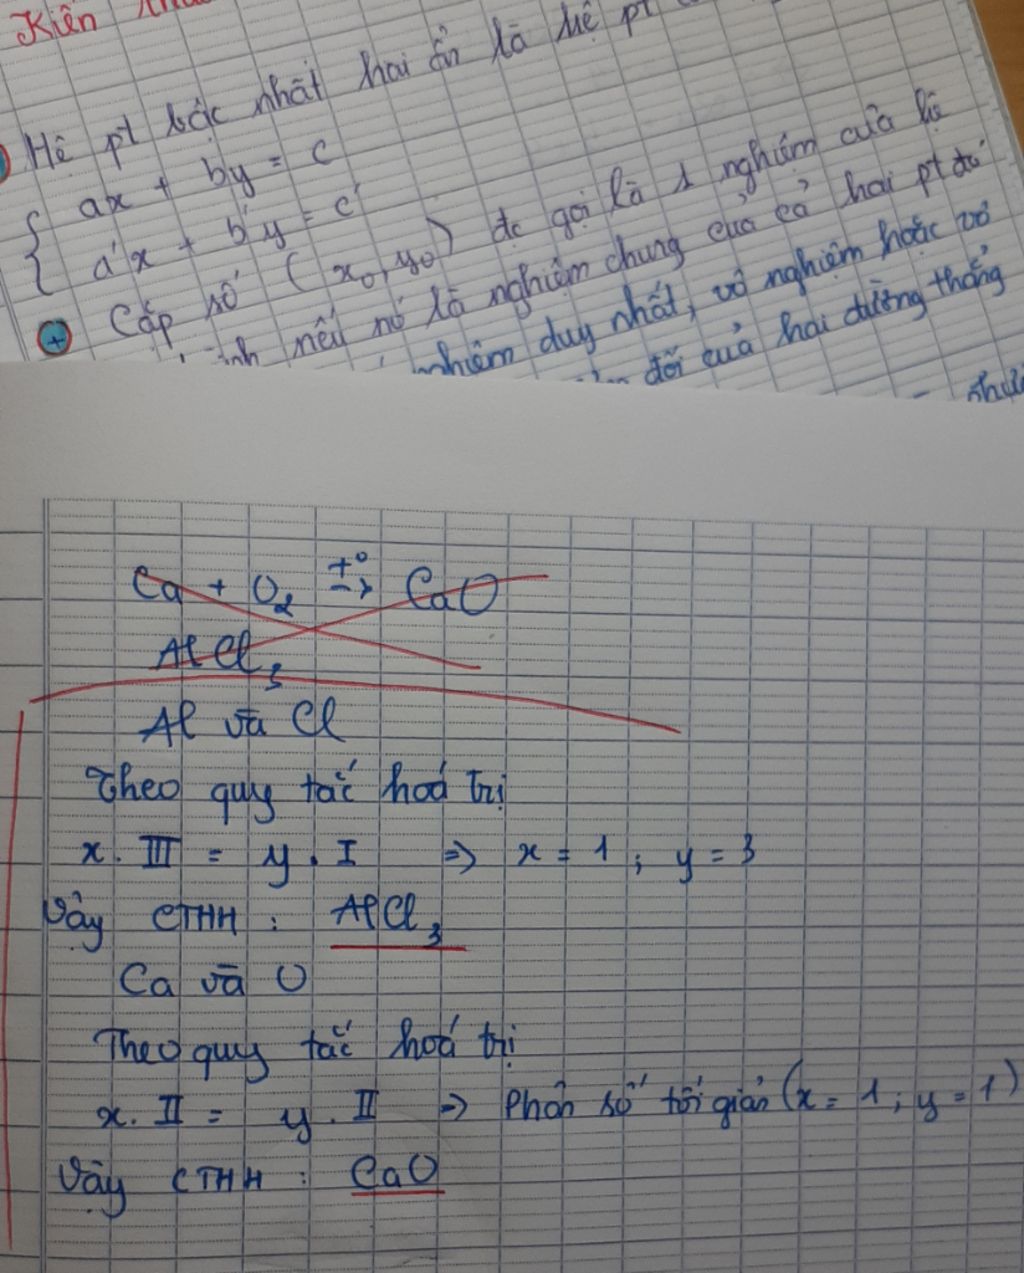 Kiến
Hệ pt bậc nhất hai ẩn là hệ pt
ax + by = c
a'x + b'y = c'
Cặp số (x₀, y₀) đc gọi là 1 nghiệm của hệ
nếu nó là nghiệm chung của cả hai pt đó
nghiệm duy nhất, vô nghiệm hoặc vô
đối của hai đường thẳng
Ca + O₂ t° -> CaO
AlCl₃
Al và Cl
Theo quy tắc hoá trị
x. III = y. I => x = 1 ; y = 3
Vậy CTHH : AlCl₃
Ca và O
Theo quy tắc hoá trị
x. II = y. II => Phân số tối giản (x = 1 ; y = 1)
Vậy CTHH : CaO